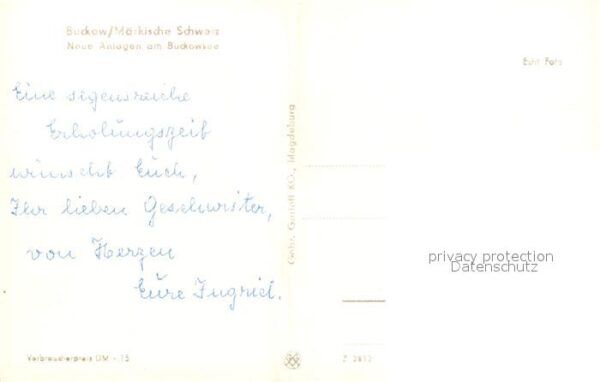 Buckow/Märkische Schweiz
Neue Anlagen am Buckowsee
Echt Foto
Eine segensreiche
Erholungszeit
wünscht Euch,
Ihr lieben Geschwister,
von Herzen
Eure Ingried.
Gebr. Garloff KG., Magdeburg
privacy protection
Datenschutz
Verbraucherpreis DM